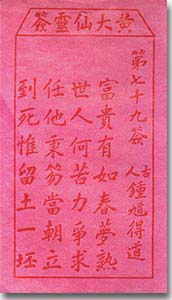 黃大仙靈簽
第七十九簽
古人 鍾馗得道
富貴有如春夢熟
世人何苦力爭求
任他秉笏當朝立
到死惟留土一坯